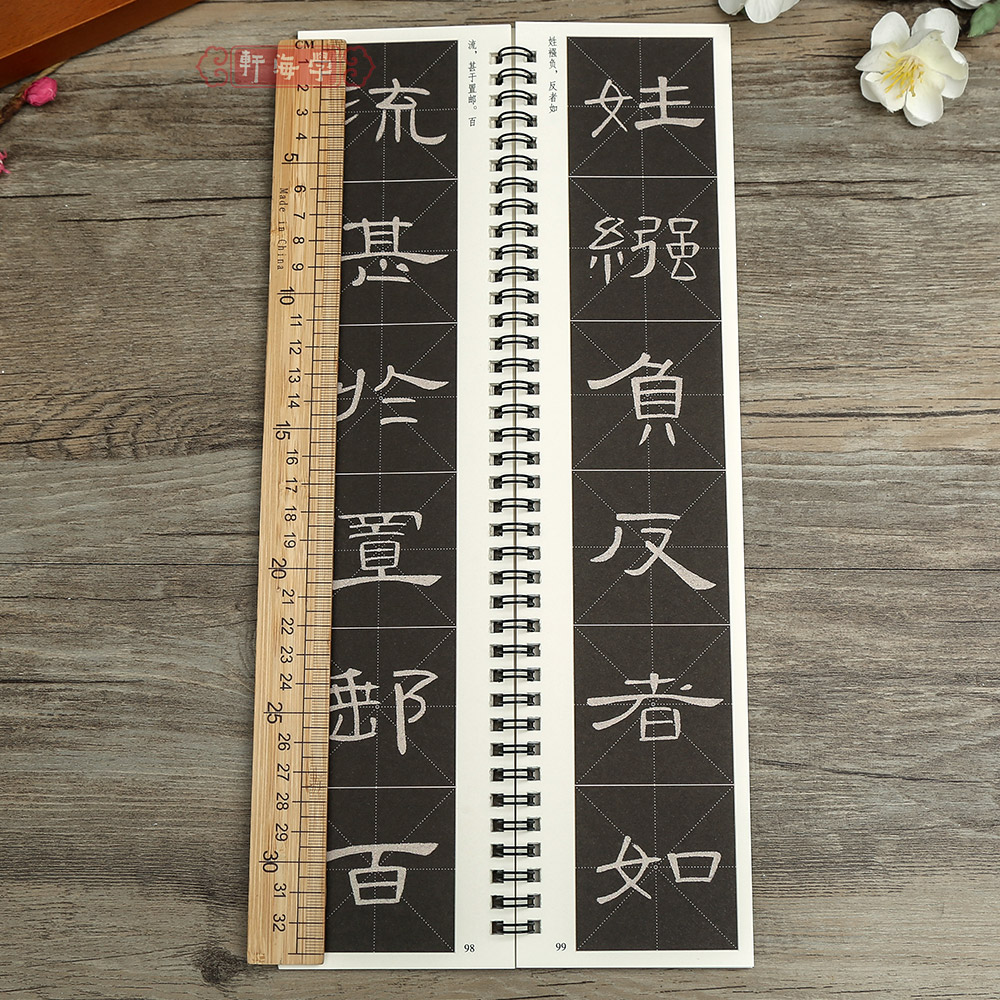 学海軒
流
甚
於
置
郵
百
流，甚于置邮。百
98
姓襁负，反者如
姓
繦
負
反
者
如
99
CM
1 2 3 4 5 6 7 8 9 10 11 12 13 14 15 16 17 18 19 20 21 22 23 24 25 26 27 28 29 30 31 32
Made in China